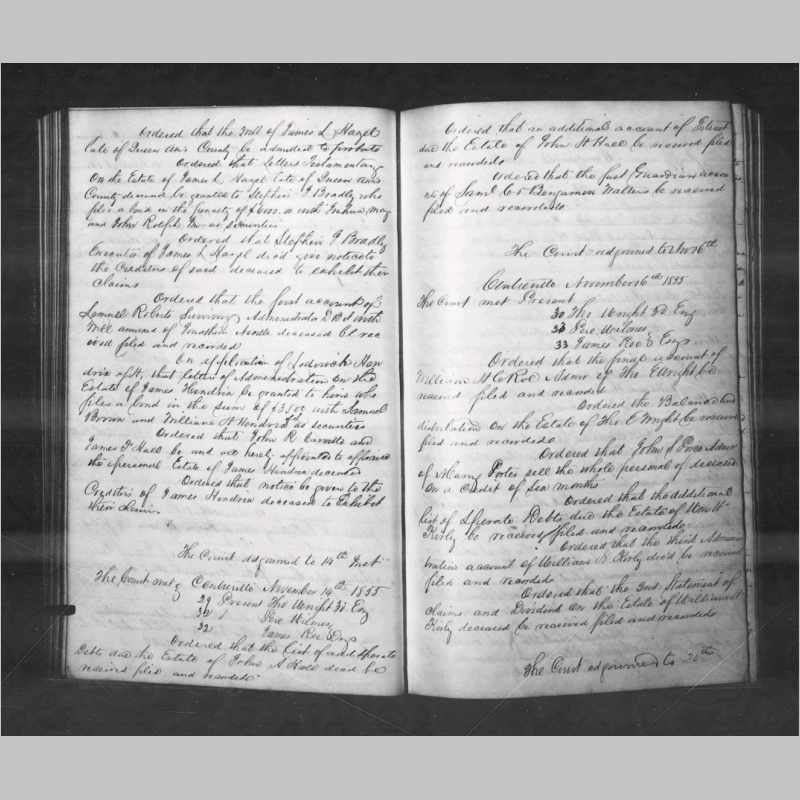 Ordered that the Will of James L Hazel
late of Queen Ann's County be admitted to probate
Ordered that Letters Testamentary
On the Estate of James L Hazel late of Queen Ann's
County deceased be granted to Stephen J Bradly who
files a bond in the penalty of with Joshua
and John Rolph as Securities
Ordered that Stephen J Bradly
Executor of James L Hazel decd give notice to
the Creditors of said deceased to exhibit their
claims
Ordered that the first account of
Samuel Roberts Surviving Administrator D B N with
Will annexed of Jonathan deceased be rec
eived filed and recorded
On application of Lodowick Hen
drix that letters of Administration on the
Estate of James Hendrix be granted to him who
files a bond in the sum of with Samuel
Brown and William H Hendrix as securities
Ordered that John R and
James T Hall be and are hereby appointed to appraise
the personal Estate of James Hendrix deceased
Ordered that notice be given to the
Creditors of James Hendrix deceased to Exhibit
their claims
The Court adjourned to 14th Inst
The Court met Centreville November 14th 1855
29 Present Tho Wright 3d Esq
32 Pere Wilmer
32 James Roe Esqs
Ordered that the list of additional Sperate
Debts due the Estate of John H Hall decd be
received filed and recorded
Ordered that an additional account of
due the Estate of John H Hall be received filed
and recorded
Ordered that the first Guardian accou
nt of Saml C & Benjamin Walters be received
filed and recorded
The Court adjourned to Nov 16th
Centreville November 16th 1855
The Court met Present
30 Tho Wright 3d Esq
Pere Wilmer
33 James Roe Esqs
Ordered that the final account of
William H C Roe Admr of Tho E Wright be
received filed and recorded
Ordered the Balance and
distribution on the Estate of Tho E Wright be received
filed and recorded
Ordered that John S Admr
of Mary Porter sell the whole personal of deceased
On a credit of Six months
Ordered that the additional
list of Sperate Debts due the Estate of Wm H
Kirby be received filed and recorded
Ordered that the third Adminis
trators account of William H Kirby decd be received
filed and recorded
Ordered that the 2nd Statement of
claims and Dividend On the Estate of William H
Kirby deceased be received filed and recorded
The Court adjourned to 20th